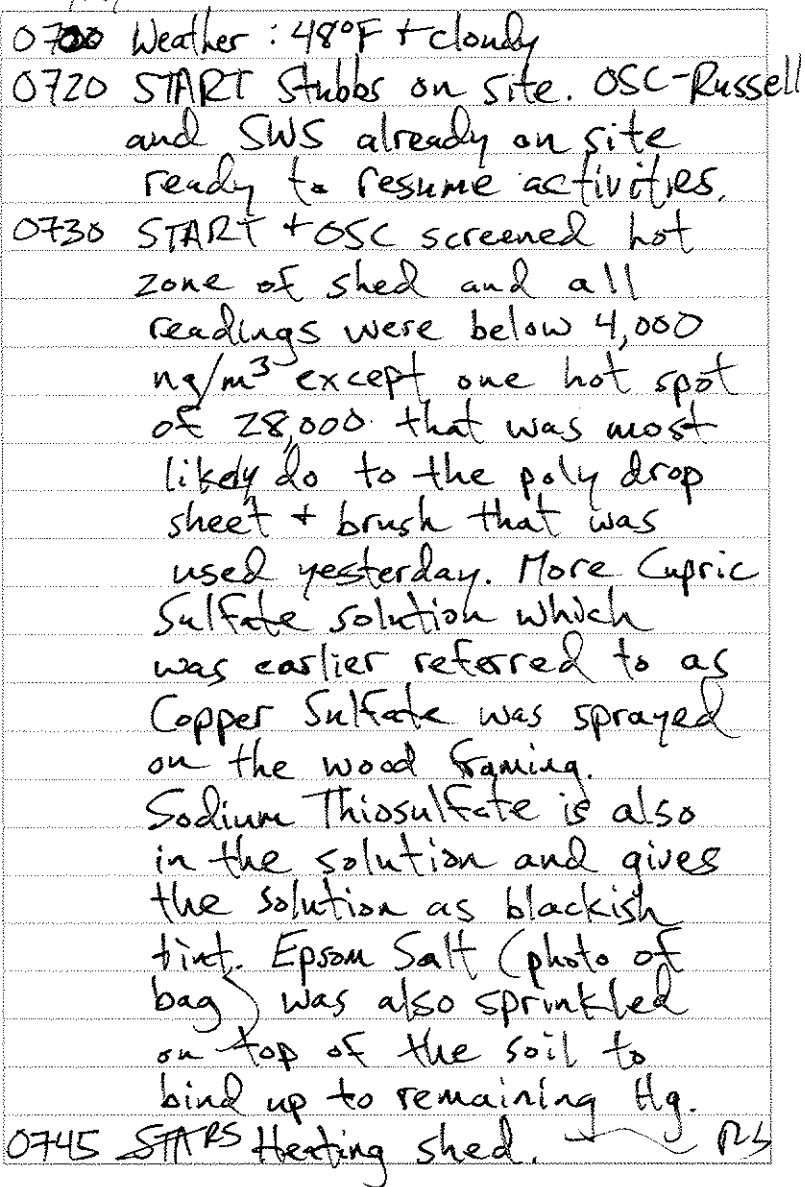 0700 Weather: 48°F + cloudy
0720 START Stubbs on site. OSC-Russell
and SWS already on site
ready to resume activities.
0730 START + OSC screened hot
zone of shed and all
readings were below 4,000
ng/m³ except one hot spot
of 28,000 that was most
likely do to the poly drop
sheet + brush that was
used yesterday. More Cupric
Sulfate solution which
was earlier referred to as
Copper Sulfate was sprayed
on the wood framing.
Sodium Thiosulfate is also
in the solution and gives
the solution as blackish
tint. Epsom Salt (photo of
bag) was also sprinkled
on top of the soil to
bind up to remaining Hg.
0745 STARS Heating shed.